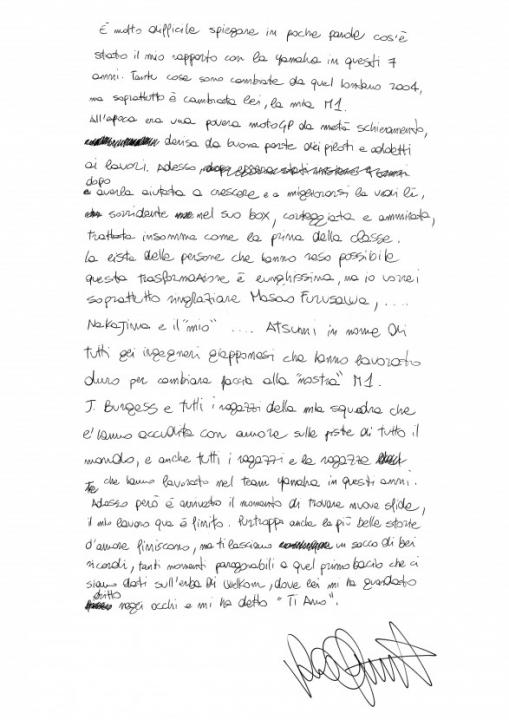 È molto difficile spiegare in poche parole cos'è
stato il mio rapporto con la Yamaha in questi 7
anni. Tante cose sono cambiate da quel lontano 2004,
ma soprattutto è cambiata lei, la mia M1.
All'epoca era una povera motoGP da metà schieramento,
derisa da buona parte dei piloti e addetti
ai lavori. Adesso,
dopo
averla aiutata a crescere e a migliorarsi la vedi lì,
sorridente nel suo box, corteggiata e ammirata,
trattata insomma come la prima della classe.
La lista delle persone che hanno reso possibile
questa trasformazione è lunghissima, ma io vorrei
soprattutto ringraziare Masao Furusawa, ....
Nakajima e il "mio" .... Atsumi in nome di
tutti gli ingegneri giapponesi che hanno lavorato
duro per cambiare faccia alla "nostra" M1.
J. Burgess e tutti i ragazzi della mia squadra che
l'hanno accudita con amore sulle piste di tutto il
mondo, e anche tutti i ragazzi e le ragazze
che hanno lavorato nel team Yamaha in questi anni.
Adesso però è arrivato il momento di trovare nuove sfide,
il mio lavoro qua è finito. Purtroppo anche le più belle storie
d'amore finiscono, ma ti lasciano un sacco di bei
ricordi, tanti momenti paragonabili a quel primo bacio che ci
siamo dati sull'erba di Welkom, dove lei mi ha guardato
dritto
negli occhi e mi ha detto "Ti Amo".